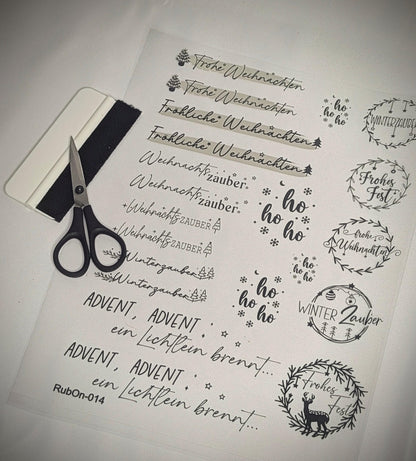 Frohe Weihnachten
Frohe Weihnachten
Fröhliche Weihnachten
Fröhliche Weihnachten
Weihnachtszauber
Weihnachtszauber
Weihnachtszauber
Weihnachtszauber
Winterzauber
Winterzauber
ADVENT, ADVENT,
ein Lichtlein brennt...
ADVENT, ADVENT,
ein Lichtlein brennt...
RubOn-014
ho
ho
ho
ho
ho
ho
ho
ho
ho
ho
ho
ho
WINTERZAUBER
Frohes
Fest
frohe
Weihnachten
WINTER Zauber
Frohes
Fest